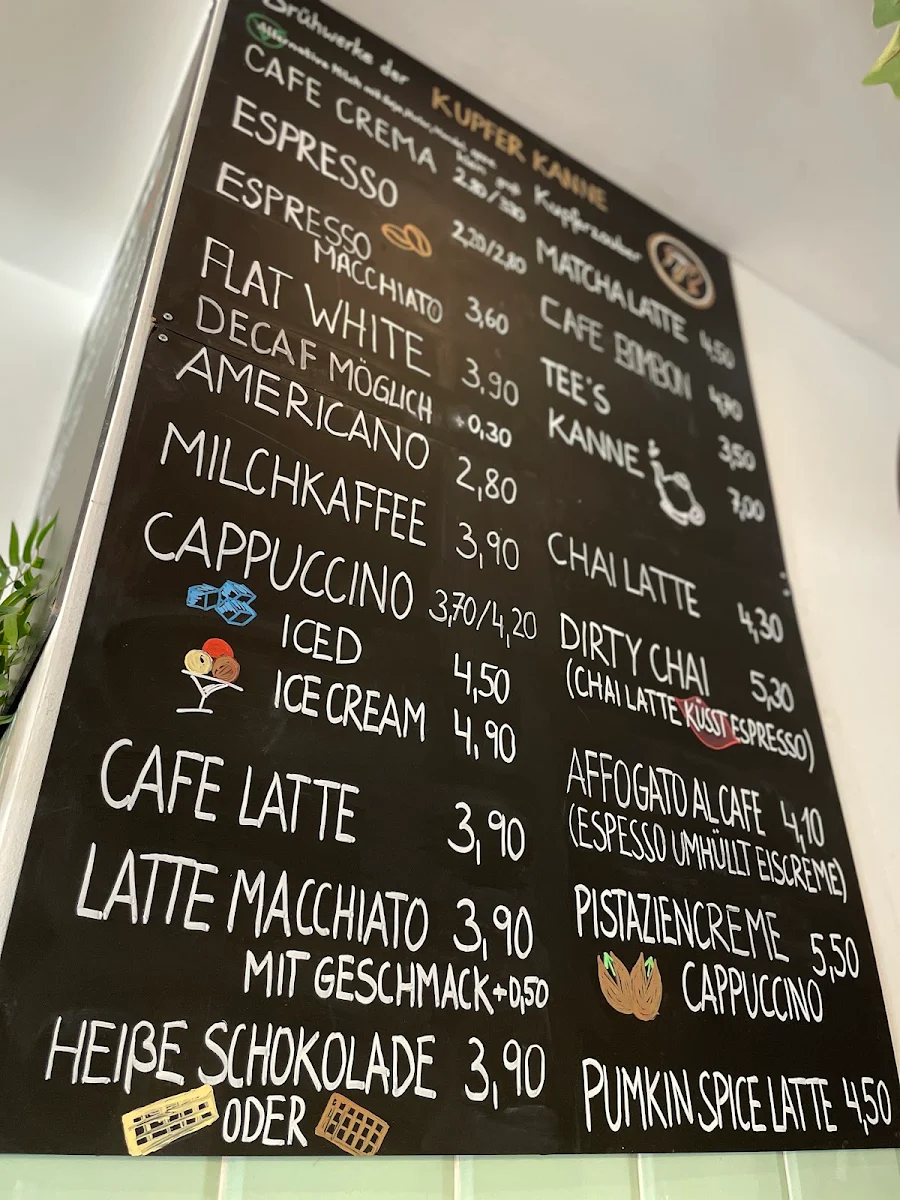 Brühwerke der
KUPFER KANNE
Alternative Milch
CAFE CREMA
ESPRESSO 2,20/2,80
ESPRESSO
MACCHIATO 3,60
FLAT WHITE 3,90
DECAF MÖGLICH +0,30
AMERICANO 2,80
MILCHKAFFEE 3,90
CAPPUCCINO 3,70/4,20
ICED 4,50
ICE CREAM 4,90
CAFE LATTE 3,90
LATTE MACCHIATO 3,90
MIT GESCHMACK +0,50
HEIßE SCHOKOLADE 3,90
ODER
Kupferzauber
MATCHA LATTE 4,50
CAFE BOMBON
TEE'S 3,50
KANNE 7,00
CHAI LATTE 4,30
DIRTY CHAI 5,30
(CHAI LATTE KÜSST ESPRESSO)
AFFOGATO AL CAFE 4,10
(ESPESSO UMHÜLLT EISCREME)
PISTAZIENCREME 5,50
CAPPUCCINO
PUMKIN SPICE LATTE 4,50